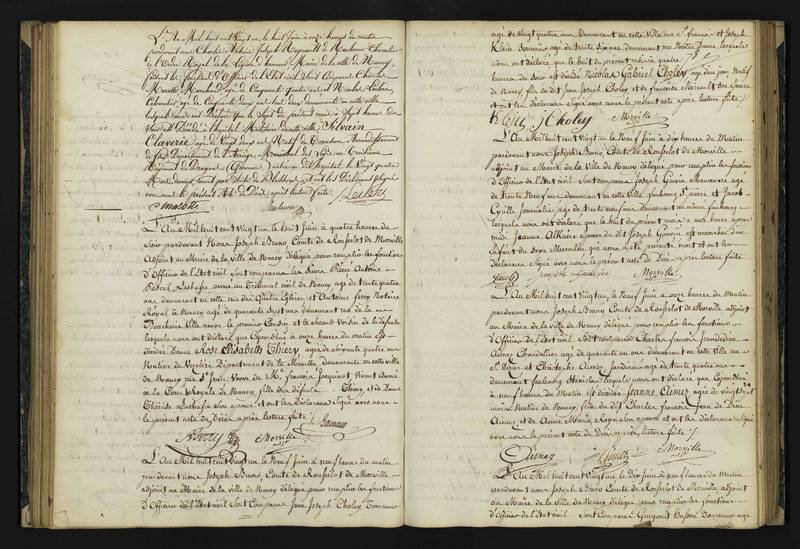 L'An Mil huit cent vingt un le huit Juin à onze heures du matin
pardevant nous Charles Antoine Joseph
de l'Ordre Royal de la Légion d'honneur Maire de la ville de Nancy,
faisant les fonctions d'Officier de l'Etat civil Sont Comparus Charles
Marotte Marchand, agé de Cinquante quatre ans et Nicolas Leclerc
agé de Cinquante deux ans tous deux demeurants en cette ville
lesquels nous ont Déclaré que le Sept du présent mois à
du soir est Décédé à l'hopital Militaire de cette ville Silvain
Claverie agé de Vingt deux ans Natif de Arrondissement
de Département de l'Ariège,
Régiment de Dragons entré au dit hopital le Vingt quatre
Mars dernier et ont les Déclarants Signé
avec nous le présent Acte de Décès après lecture faite / Leclerc
Marotte
L'An Mil huit cent vingt un le huit Juin à quatre heures du
Soir pardevant Nous Joseph Bruno Comte de Rousselot de Morville
Adjoint au Maire de la Ville de Nancy délégué pour remplir les fonctions
d'Officier de l'Etat civil Sont comparus les Sieurs Pierre Antoine
Pascal Lachasse avoué au Tribunal civil de Nancy agé de trente quatre
ans demeurant en cette ville rue des Quatre Eglises et Antoine Ferry Notaire
Royal à Nancy agé de quarante Sept ans demeurant rue de la
Boucherie Ville neuve le premier Cousin et le Second Voisin de la défunte
lesquels nous ont déclaré que Ce jourd'hui à onze heures du matin est
décédée Dame Rose Elisabeth Thiéry agée de Soixante quatre ans
Native de Vezelize Département de la Meurthe demeurante en cette ville
de Nancy rue St Jean Veuve de M. François Jacquinot Vivant Avocat
à la Cour Royale de Nancy, fille des défunts Thiéry et de Dame
Thérèse Lachasse Son épouse et ont les Déclarans Signé avec nous
le présent acte de Décès après lecture faite
A Ferry Morville
L'An Mil huit cent vingt un le Neuf Juin à neuf heures du matin
pardevant nous Joseph Bruno Comte de Rousselot de Morville
adjoint au Maire de la Ville de Nancy délégué pour remplir les fonctions
d'Officier de l'Etat civil Sont Comparus Jean Joseph Choley Tonneau
agé de vingt quatre ans Demeurant en cette Ville rue St François et Joseph
Klein agé de trente Six ans demeurant rue Notre Dame, lesquels
nous ont déclaré que le huit du présent mois à quatre
heures du Soir est décédé Nicolas Gabriel Choley agé d'un jour Natif
de Nancy fils du dit Jean Joseph Choley et de Françoise
et ont les déclarans Signé avec nous le présent acte après lecture faite /
Klein J Choley Morville
L'An Mil huit cent vingt un le Neuf Juin à dix heures du Matin
pardevant nous Joseph Bruno Comte de Rousselot de Morville
adjoint au Maire de la Ville de Nancy délégué pour remplir les fonctions
d'Officier de l'Etat civil Sont comparus Joseph agé
de trente Neuf ans demeurant en cette Ville faubourg St pierre et Jacob
Cyrille Journalier, agé de trente neuf ans demeurant au même faubourg
lesquels nous ont déclaré que le huit du présent mois à une heure après
midi Jeanne Alkain Epouse du dit Joseph est accouchée d'un
Enfant du Sexe Masculin qui nous a été présenté mort et ont les
déclarans Signé avec nous le présent acte de Décès après lecture faite
Joseph Morville
L'An Mil huit cent vingt un le Neuf Juin à onze heures du Matin
pardevant nous Joseph Bruno Comte de Rousselot de Morville adjoint
au Maire de la Ville de Nancy délégué pour remplir les fonctions
d'Officier de l'Etat civil Sont comparus Charles François Jean de Dieu
Aimez Chandellier agé de quarante un ans demeurant en cette Ville rue
St Dizier et Christophe Aimez Jardinier agé de trente quatre ans
demeurant faubourg Stanislas lesquels nous ont déclaré que Ce jourd'hui
à neuf heures du Matin est décédée Jeanne Aimez agée de vingt
mois Native de Nancy, fille du dit Charles François Jean de Dieu
Aimez et de Anne Marie Son épouse et ont les déclarans Signé
avec nous le présent acte de Décès après lecture faite /
Aimez Aimez Morville
L'An Mil huit cent vingt un le Dix Juin à neuf heures du Matin
pardevant nous Joseph Bruno Comte de Rousselot de Morville, adjoint
au Maire de la Ville de Nancy délégué pour remplir les fonctions
d'Officier de l'Etat civil Sont Comparus Husson Tonneau agé